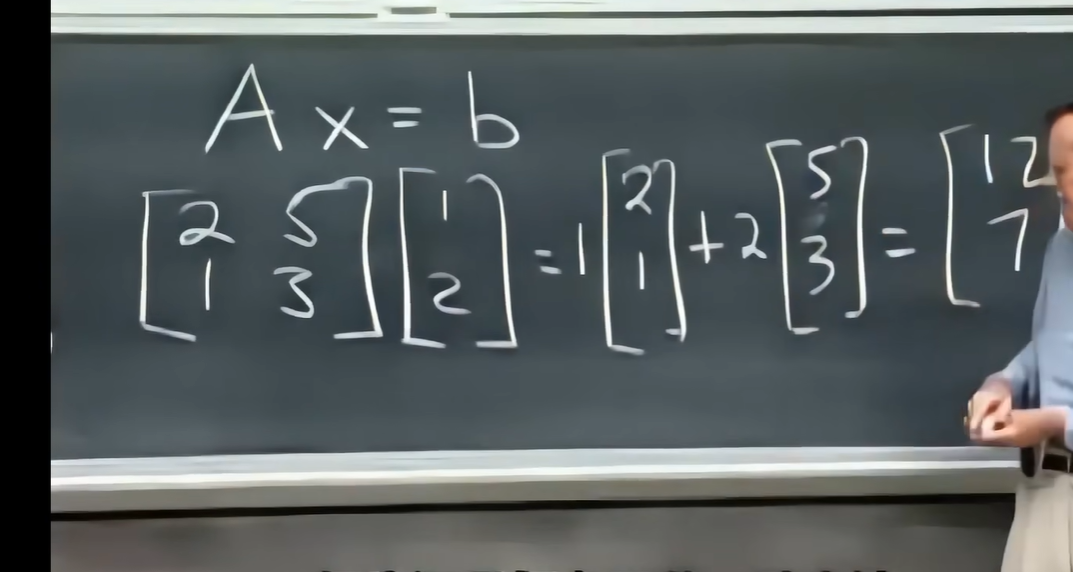 A x = b
[2 5
1 3] [1
2] = 1 [2
1] + 2 [5
3] = [12
7